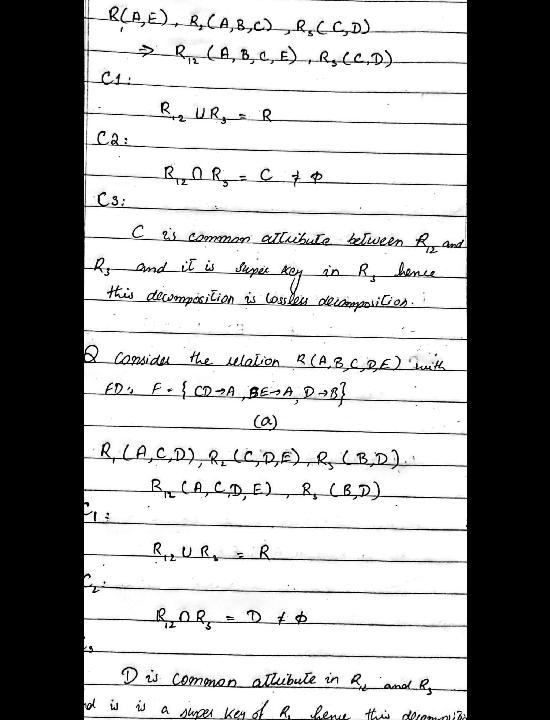 R₁(A,E), R₂(A,B,C), R₃(C,D)
⇒ R₁₂ (A,B,C,E), R₃(C,D)
C1:
R₁₂ ∪ R₃ = R
C2:
R₁₂ ∩ R₃ = C ≠ φ
C3:
C is common attribute between R₁₂ and
R₃ and it is super key in R₃ hence
this decomposition is lossless decomposition.
Q Consider the relation R(A,B,C,D,E) with
FD's F = { CD→A, BE→A, D→B}
(a)
R₁(A,C,D), R₂(C,D,E), R₃(B,D).
R₁₂(A,C,D,E), R₃(B,D)
C₁:
R₁₂ ∪ R₃ = R
C₂:
R₁₂ ∩ R₃ = D ≠ φ
D is common attribute in R₁₂ and R₃
is is a super key of R₃ hence this